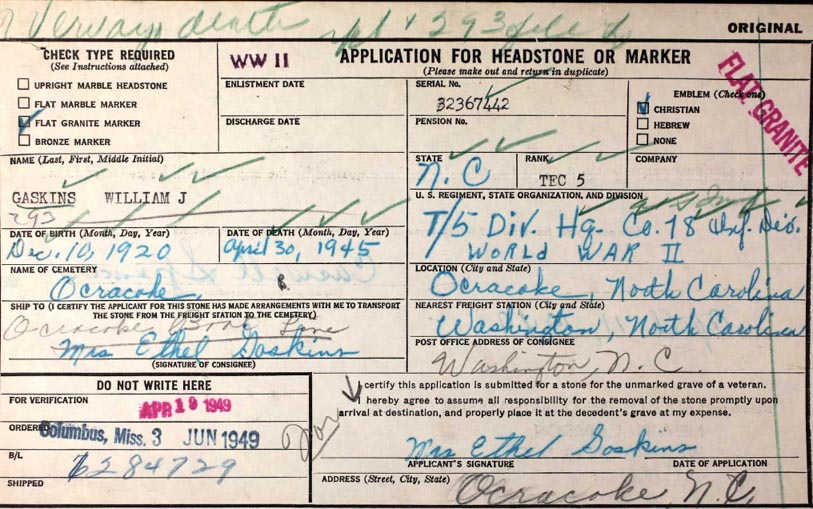 death
ORIGINAL
CHECK TYPE REQUIRED
(See Instructions attached)
UPRIGHT MARBLE HEADSTONE
FLAT MARBLE MARKER
FLAT GRANITE MARKER
BRONZE MARKER
WW II
APPLICATION FOR HEADSTONE OR MARKER
(Please make out and return in duplicate)
ENLISTMENT DATE
DISCHARGE DATE
SERIAL No.
32367442
PENSION No.
EMBLEM (Check one)
CHRISTIAN
HEBREW
NONE
FLAT GRANITE
NAME (Last, First, Middle Initial)
GASKINS WILLIAM J
293
STATE
N.C
RANK
TEC 5
COMPANY
U. S. REGIMENT, STATE ORGANIZATION, AND DIVISION
T/5 Div. Hq. Co. 78 Inf. Div.
WORLD WAR II
DATE OF BIRTH (Month, Day, Year)
Dec. 10, 1920
DATE OF DEATH (Month, Day, Year)
April 30, 1945
NAME OF CEMETERY
Ocracoke,
LOCATION (City and State)
Ocracoke, North Carolina
SHIP TO (I CERTIFY THE APPLICANT FOR THIS STONE HAS MADE ARRANGEMENTS WITH ME TO TRANSPORT
THE STONE FROM THE FREIGHT STATION TO THE CEMETERY)
Ocracoke Line
Mrs Ethel Gaskins
(SIGNATURE OF CONSIGNEE)
NEAREST FREIGHT STATION (City and State)
Washington, North Carolina
POST OFFICE ADDRESS OF CONSIGNEE
Washington, N.C.
DO NOT WRITE HERE
FOR VERIFICATION
APR 19 1949
ORDERED
Columbus, Miss. 3 JUN 1949
B/L
6284729
SHIPPED
I certify this application is submitted for a stone for the unmarked grave of a veteran.
I hereby agree to assume all responsibility for the removal of the stone promptly upon
arrival at destination, and properly place it at the decedent's grave at my expense.
Mrs Ethel Gaskins
APPLICANT'S SIGNATURE
DATE OF APPLICATION
ADDRESS (Street, City, State)
Ocracoke, N.C.